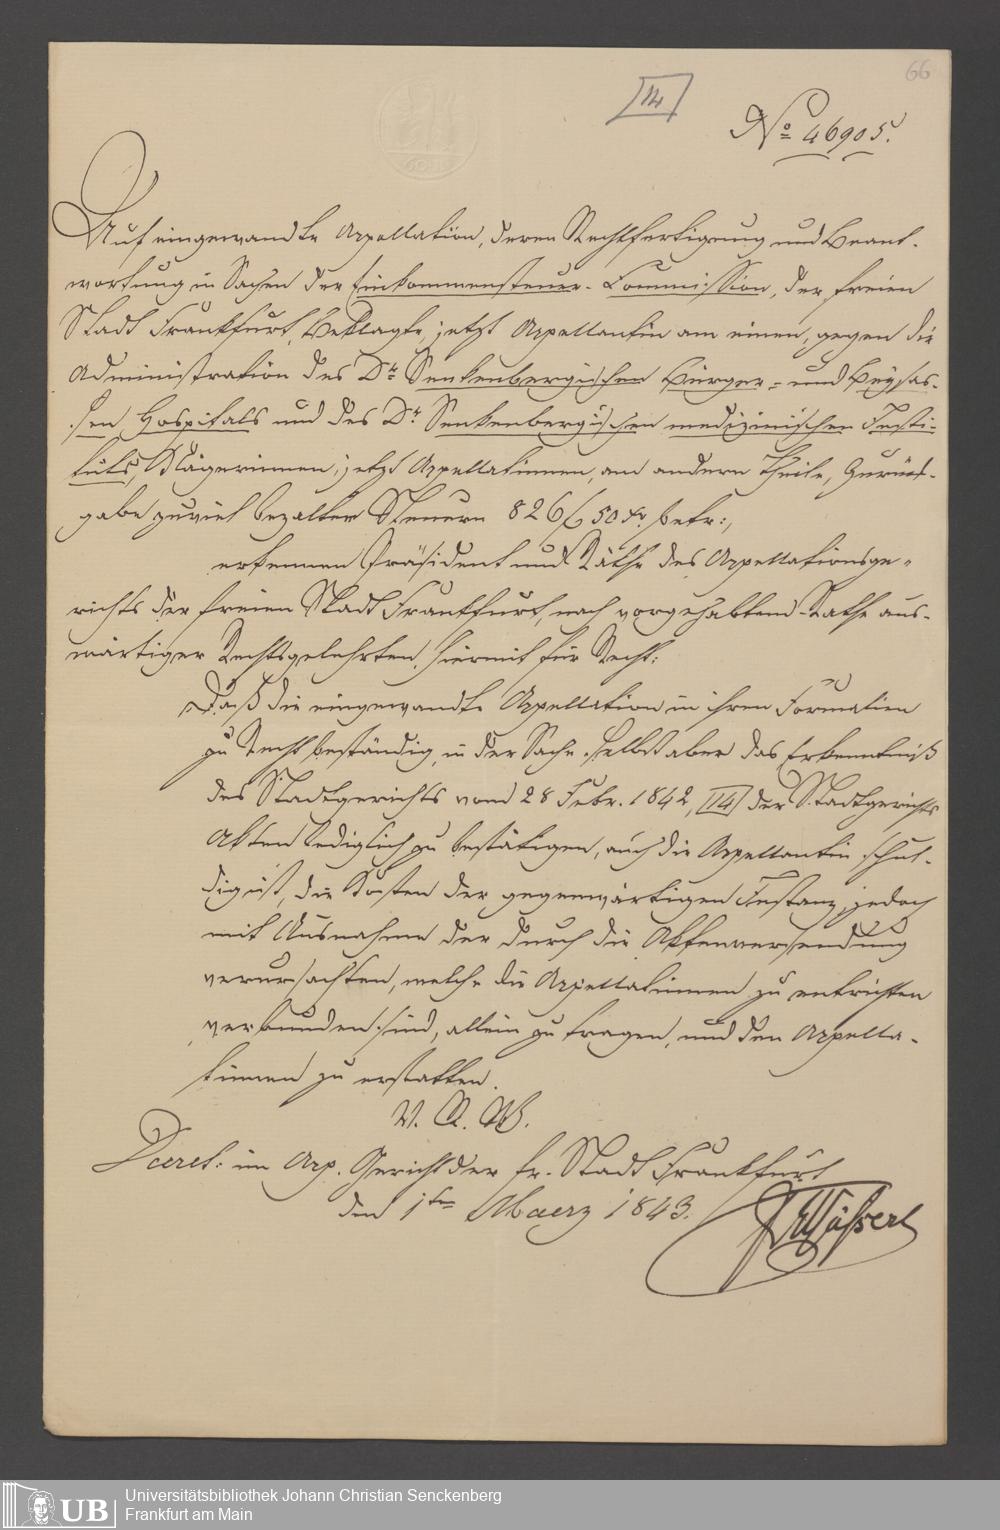 66
14
No 46905.
Auf eingewandte Appellation, deren Rechtfertigung und Beant-
wortung in Sachen der Einkommensteuer-Commission, der freien
Stadt Frankfurt, Beklagte, jetzt Appellantin am einen, gegen die
Administration des Dr. Senkenbergischen Bürger- und Beysas-
sen Hospitals und des Dr. Senkenbergischen medizinischen Insti-
tuts, Klägerinnen, jetzt Appellatinnen, am andern Theile, Zurück-
gabe zuviel bezalter Steuern 826 f 50 Xr. betr:,
erkennen Präsident und Räthe des Appellationsge-
richts der freien Stadt Frankfurt, nach vorgehabtem Rathe aus-
wärtiger Rechtsgelehrten, hiermit für Recht:
Daß die eingewandte Appellation in ihren Formalien
zu Recht beständig, in der Sache selbst aber das Erkenntniß
des Stadtgerichts vom 28 Febr. 1842, [14] der Stadtgerichts
Akten lediglich zu bestätigen, auch die Appellantin schul-
dig ist, die Kosten der gegenwärtigen Instanz, jedoch
mit Ausnahme der durch die Aktenversendung
verursachten, welche die Appellatinnen zu entrichten
verbunden sind, allein zu tragen, und den Appella-
tinnen zu erstatten.
V. R. W.
Decret: im App. Gericht der fr. Stadt Frankfurt
den 1ten Maerz 1843.
UB
Universitätsbibliothek Johann Christian Senckenberg
Frankfurt am Main